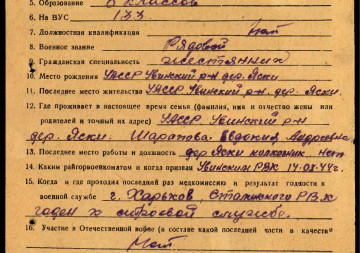 5. Образование 6 классов
6. На ВУС 133
7. Должностная квалификация Нет
8. Военное звание Рядовой
9. Гражданская специальность жестянщик
10. Место рождения УАССР Увинский р-н дер. Яски
11. Последнее место жительства УАССР Увинский р-н. дер. Яски.
12. Где проживает в настоящее время семья (фамилия, имя и отчество жены или
родителей и точный их адрес) УАССР Увинский р-н
дер. Яски. Шарапова Евдокия Андреевна
13. Последнее место работы и должность дер Яски колхозник. Нет
14. Каким райгорвоенкоматом и когда призван Увинским РВК 14.03.44г.
15. Когда и где проходил последний раз медкомиссию и результат годности в
военной службе г. Харьков, Сталинского РВК
годен к строевой службе.
16. Участие в Отечественной войне (в составе какой последней части в качестве
Нет